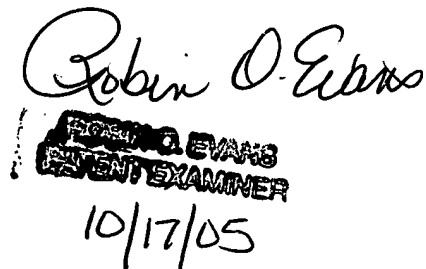 Robin O. Evans
ROBIN O. EVANS
PATENT EXAMINER
10/17/05